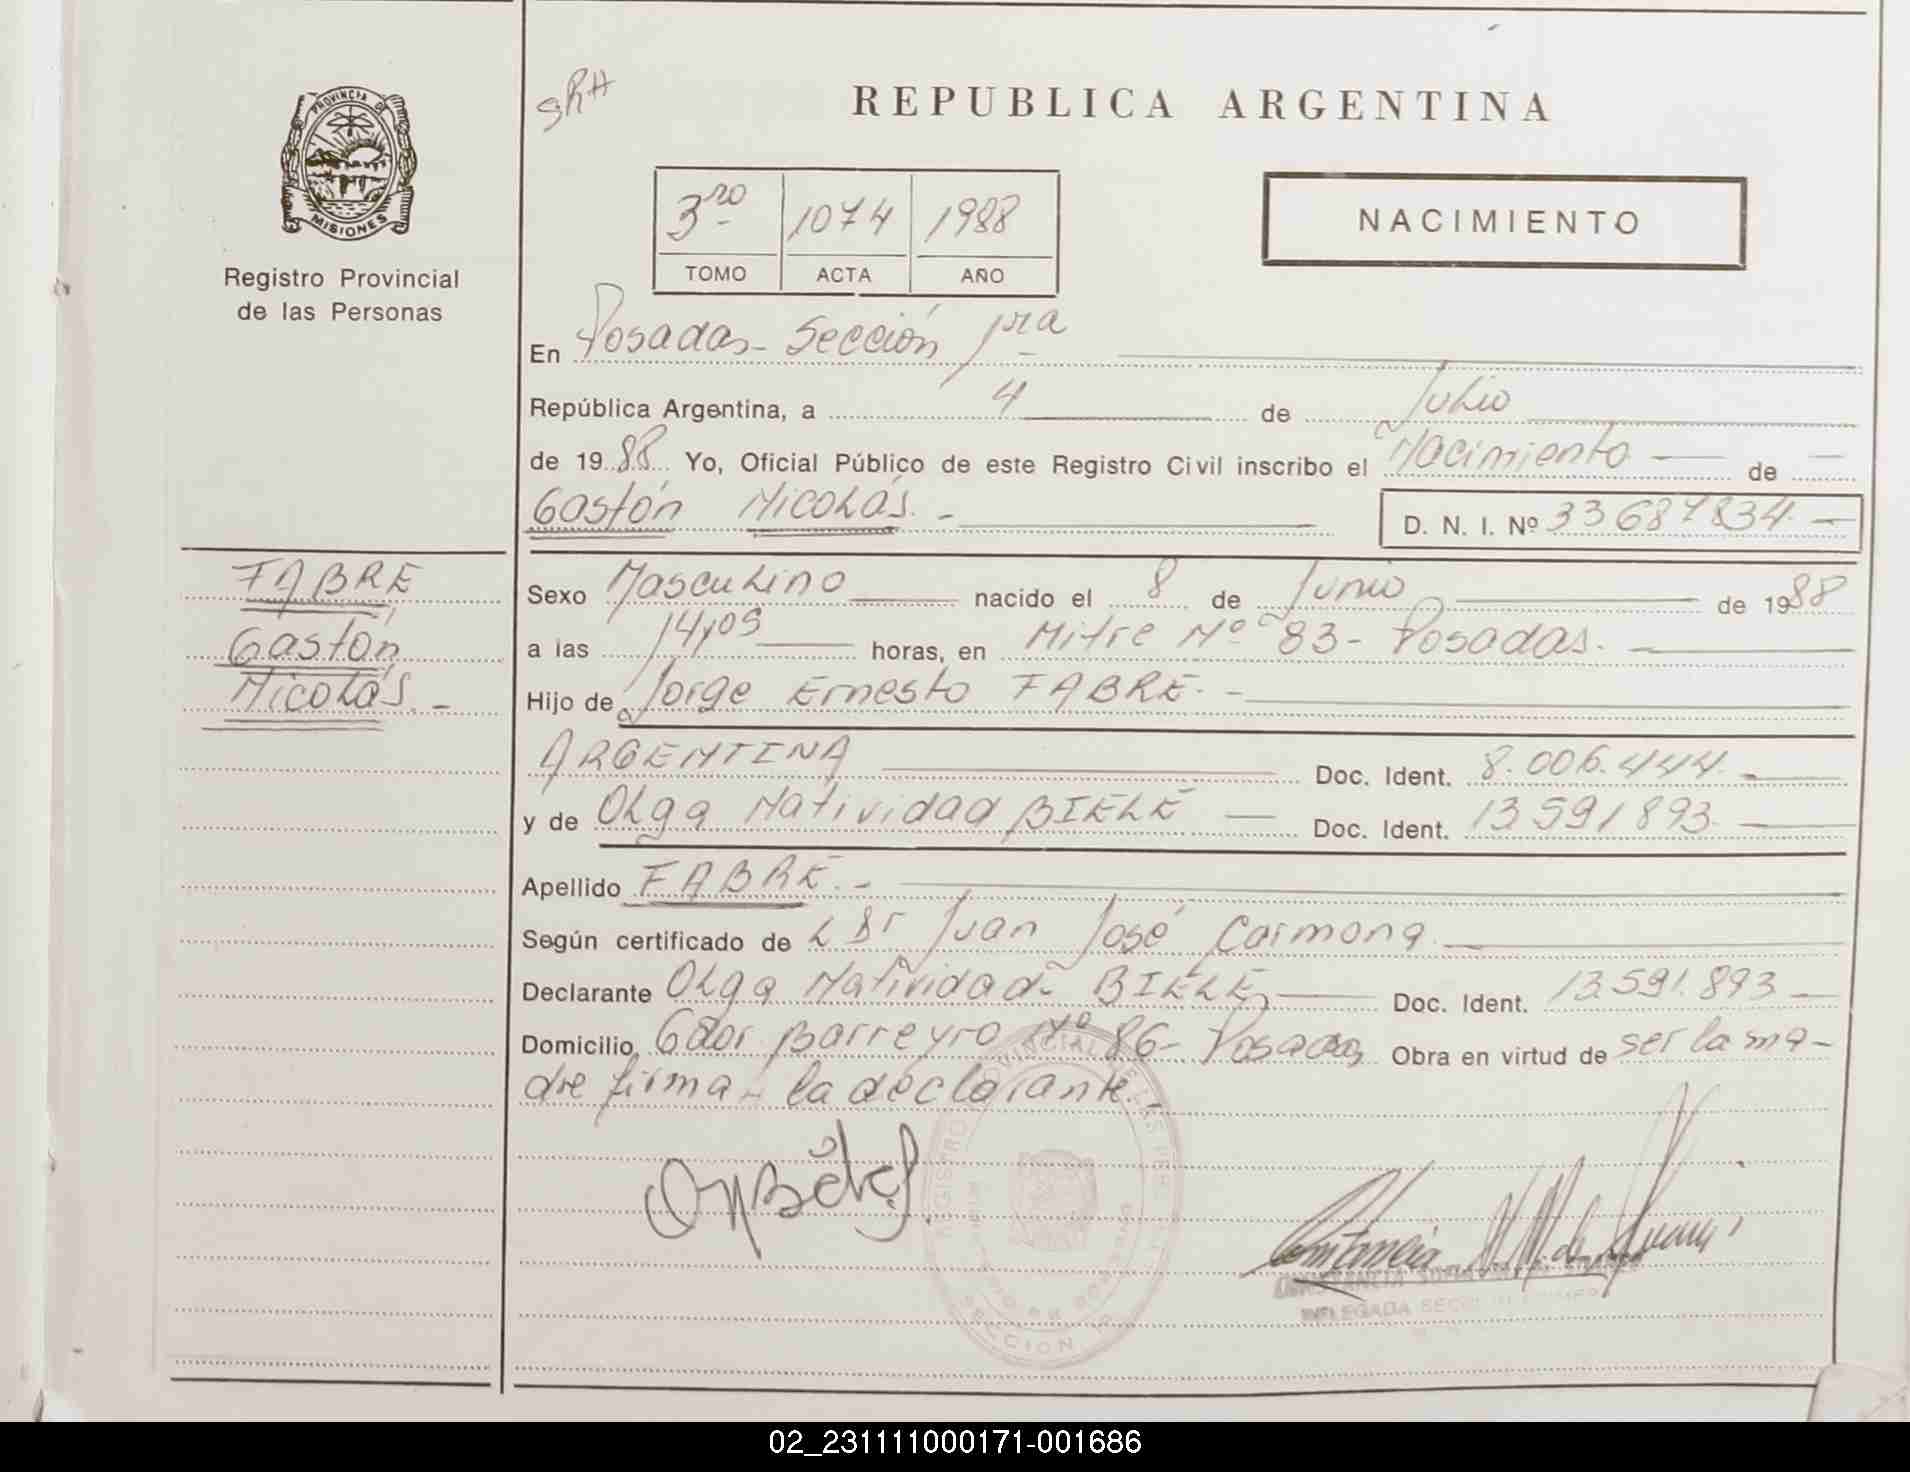 PROVINCIA DE
MISIONES
Registro Provincial
de las Personas
SRH
REPUBLICA ARGENTINA
3ro 1074 1988
TOMO ACTA AÑO
NACIMIENTO
En Posadas - Sección 1ra
República Argentina, a 4 de Julio
de 1988 Yo, Oficial Público de este Registro Civil inscribo el Nacimiento de
Gastón Nicolás. - D. N. I. Nº 33687834 -
FABRE
Gastón
Nicolás. -
Sexo Masculino nacido el 8 de Junio de 1988
a las 14,05 horas, en Mitre Nº 83 - Posadas. -
Hijo de Jorge Ernesto FABRE. -
ARGENTINA Doc. Ident. 8.006.444. -
y de Olga Natividad BIELÉ - Doc. Ident. 13591893. -
Apellido FABRE. -
Según certificado de Dr Juan José Carmona.
Declarante Olga Natividad BIELE, Doc. Ident. 13.591.893 -
Domicilio Gdor Barreyro Nº 86 - Posadas Obra en virtud de ser la ma-
dre firma - la declarante. -
REGISTRO PROVINCIAL DE LAS
SECCION 1a
CONSTANCIA
DELEGADA
02_231111000171-001686